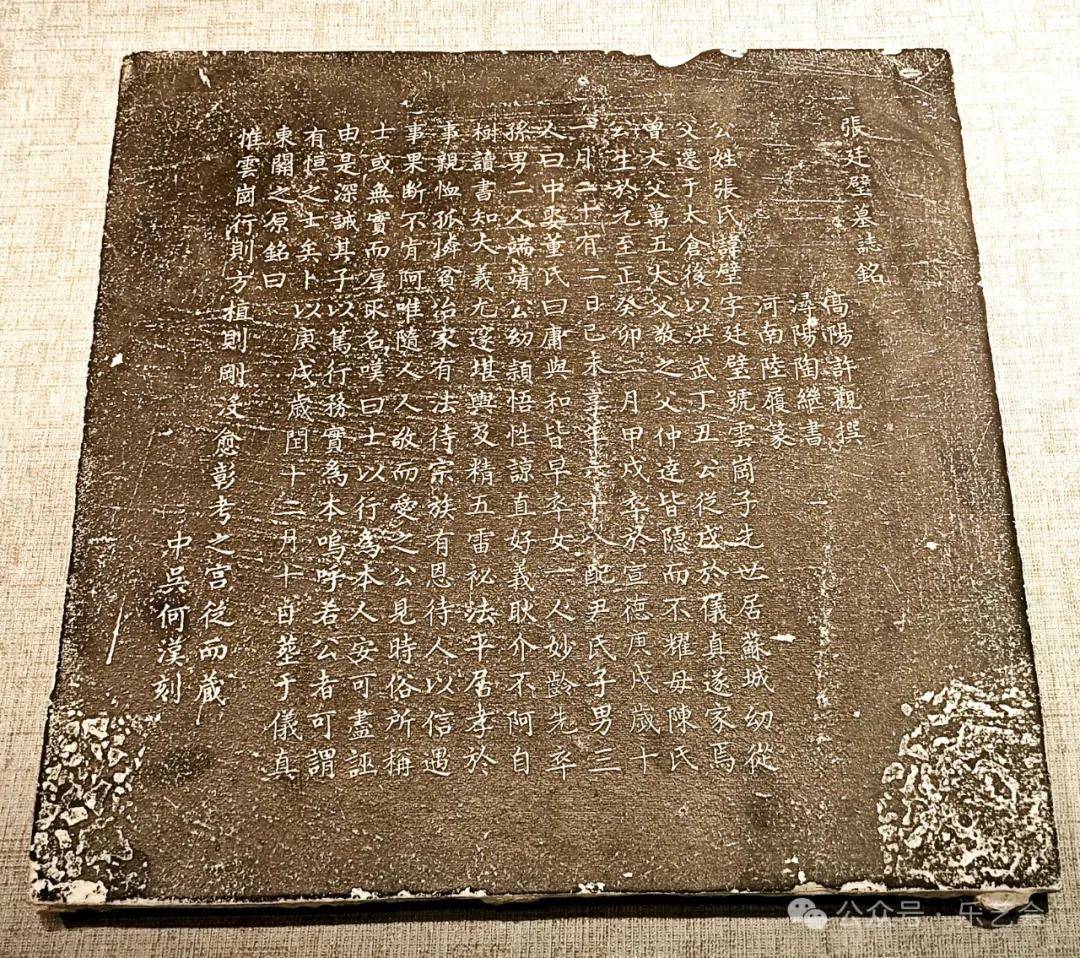 張廷璧墓誌銘
高陽許觀撰
潯陽陶繼書
河南陸履篆
公姓張氏諱璧字廷璧號雲崗子先世居蘇城幼從
父遷于太倉後以洪武丁丑公從戍於儀真遂家焉
曾大父萬五大父敬之父仲達皆隱而不耀母陳氏
公生於元至正癸卯二月甲戌卒於宣德庚戌歲十
一月二十有二日己未享年六十八配尹氏子男三
人曰中娶董氏曰庸與和皆早卒女一人妙齡先卒
孫男二人端靖公幼穎悟性諒直好義耿介不阿自
樹讀書知大義尤邃堪輿及精五雷祕法平居孝於
事親恤孤憐貧治家有法待宗族有恩待人以信遇
事果断不肯阿唯隨人人敬而愛之公見時俗所稱
士或無實而厚取名嘆曰士以行為本人安可盡誣
由是深誡其子以篤行務實為本嗚呼若公者可謂
有恒之士矣卜以庚戌歲閏十二月十日葬于儀真
東關之原銘曰
惟雲崗行則方植則剛沒愈彰考之宮從而藏
中吳何漢刻
公众号·乐艺会